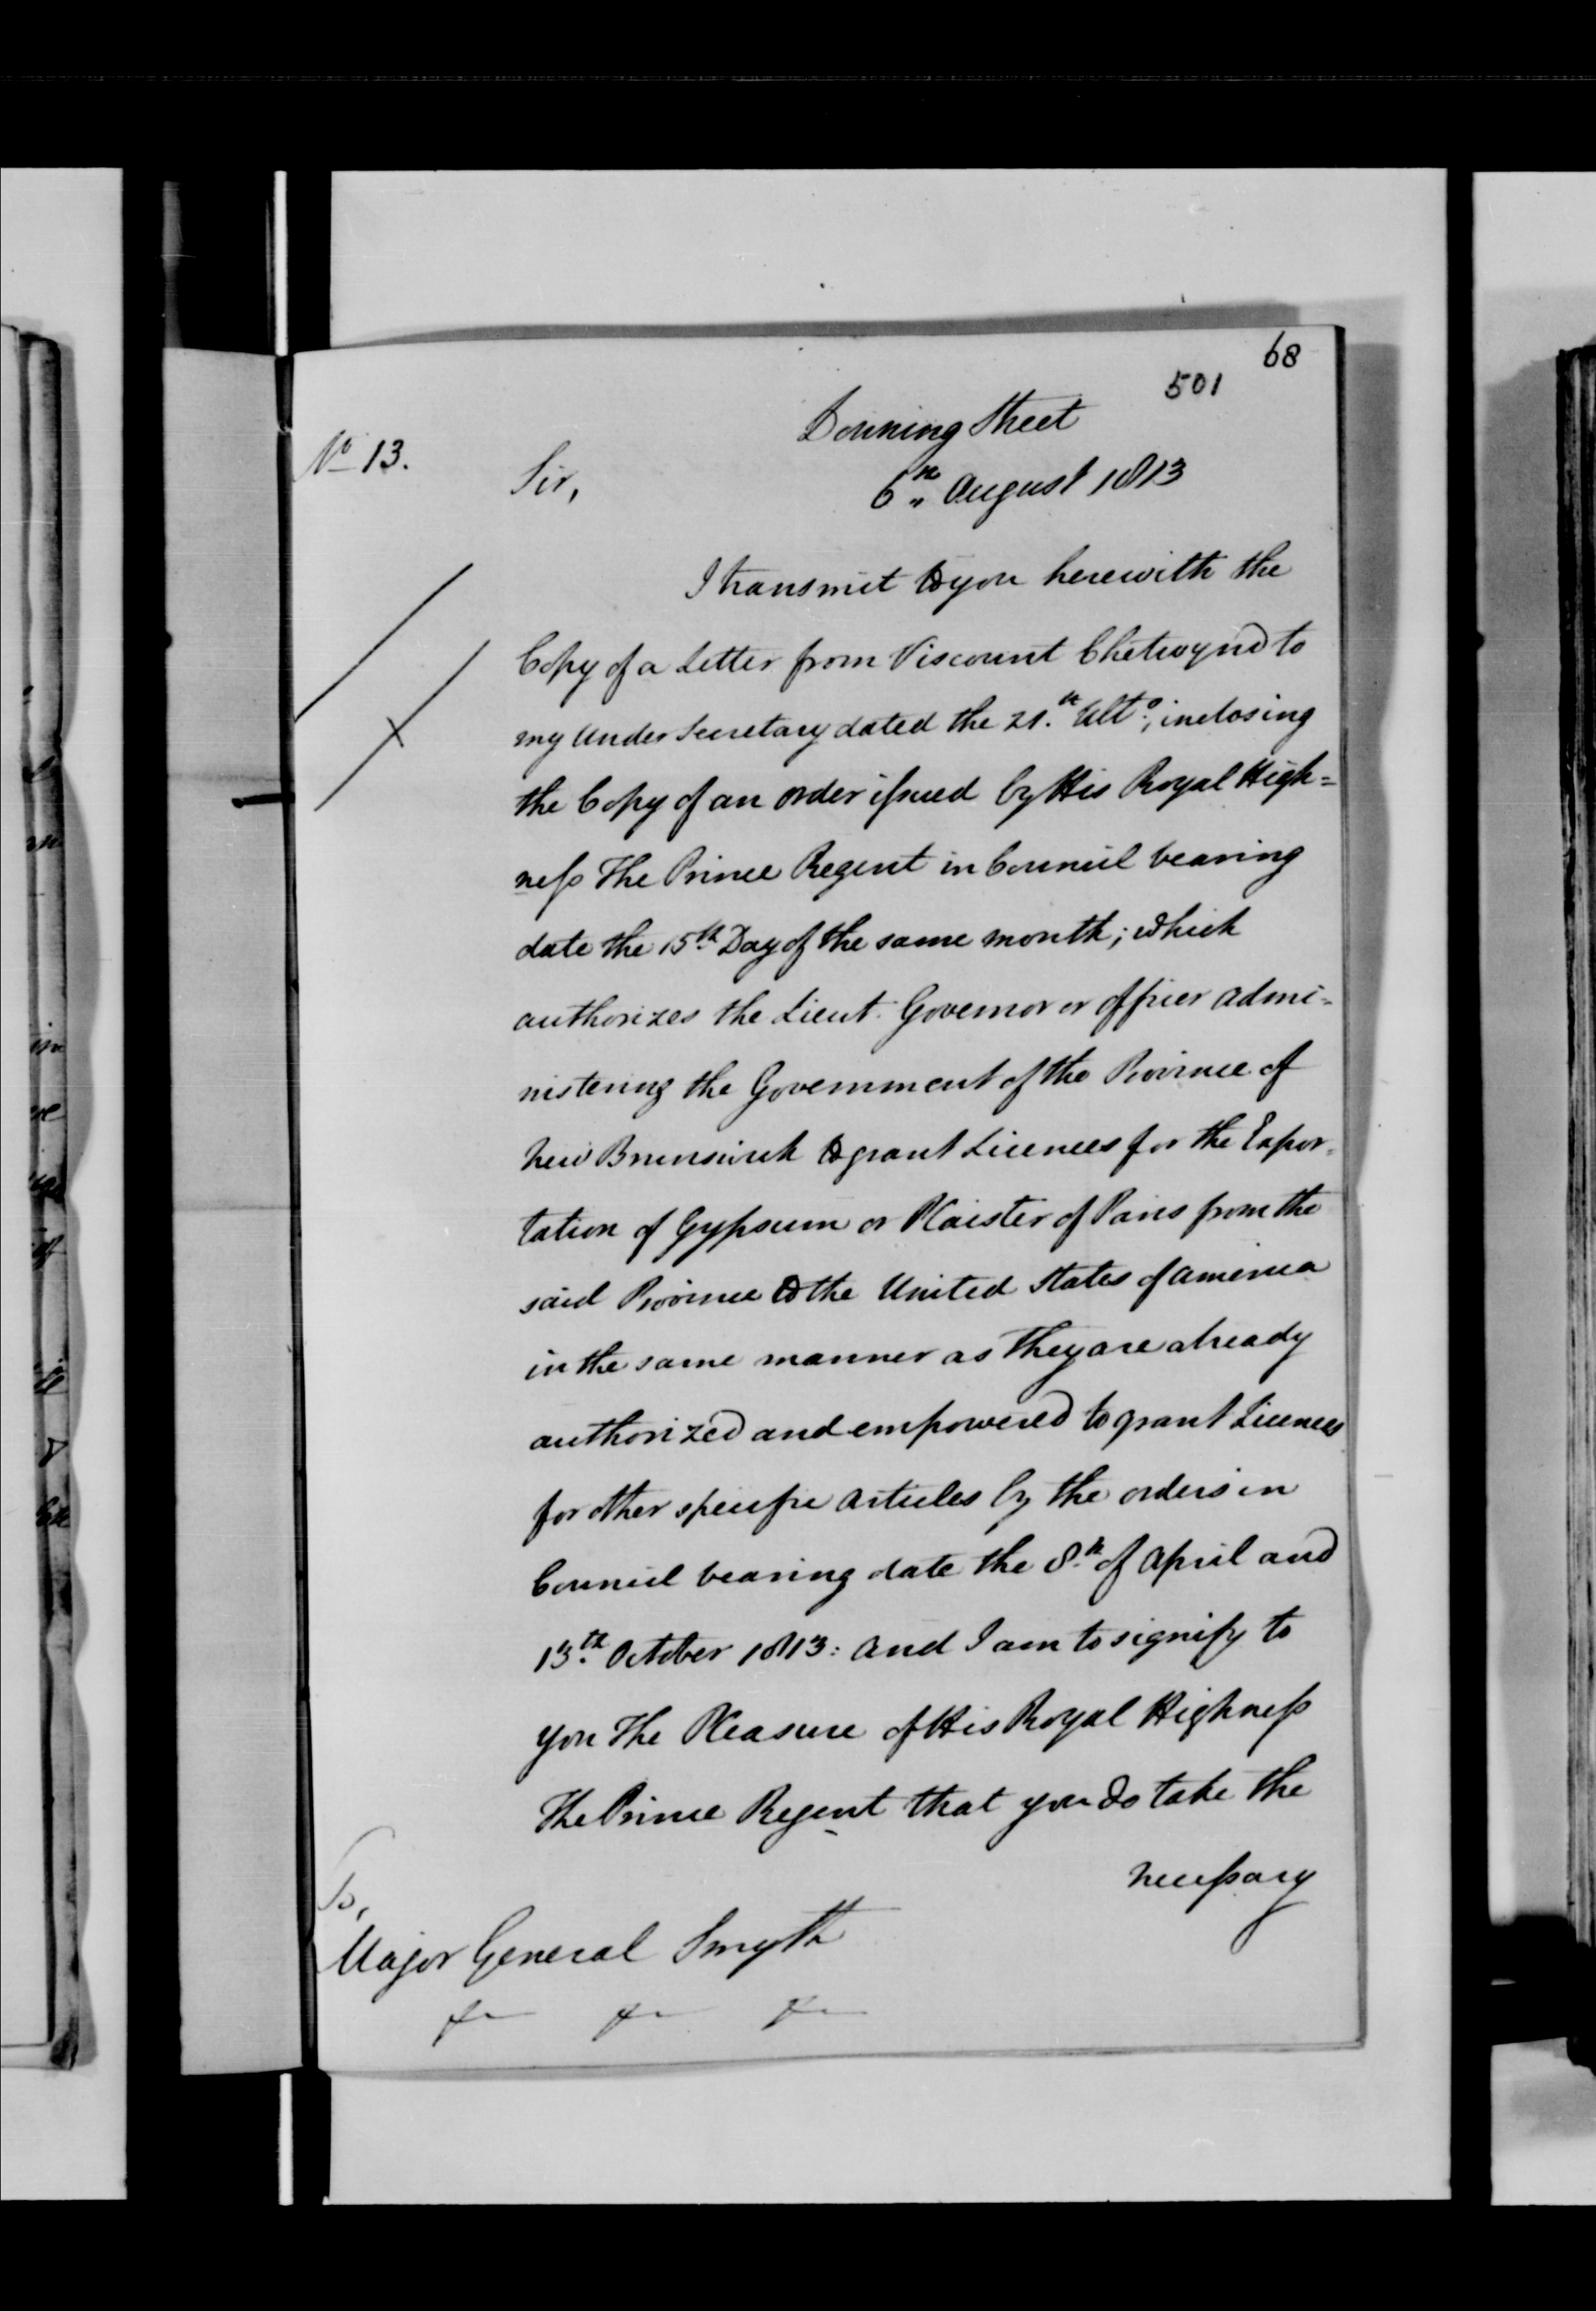 68
501
Downing Street
No 13.
Sir,
6th August 1813
I transmit to you herewith the
Copy of a Letter from Viscount Chetwynd to
my Under Secretary dated the 21.st Ulto:, inclosing
the Copy of an order issued by His Royal High=
ness The Prince Regent in Council bearing
date the 15th Day of the same month; which
authorizes the Lieut. Governor or officer admi=
nistering the Government of the Province of
New Brunswick to grant Licences for the Expor=
tation of Gypsum or Plaister of Paris from the
said Province to the United States of America
in the same manner as they are already
authorized and empowered to grant Licences
for other specific articles by the orders in
Council bearing date the 8.th of April and
13.th October 1813: and I am to signify to
you The Pleasure of His Royal Highness
The Prince Regent that you do take the
necessary
To,
Major General Smyth
&c &c &c